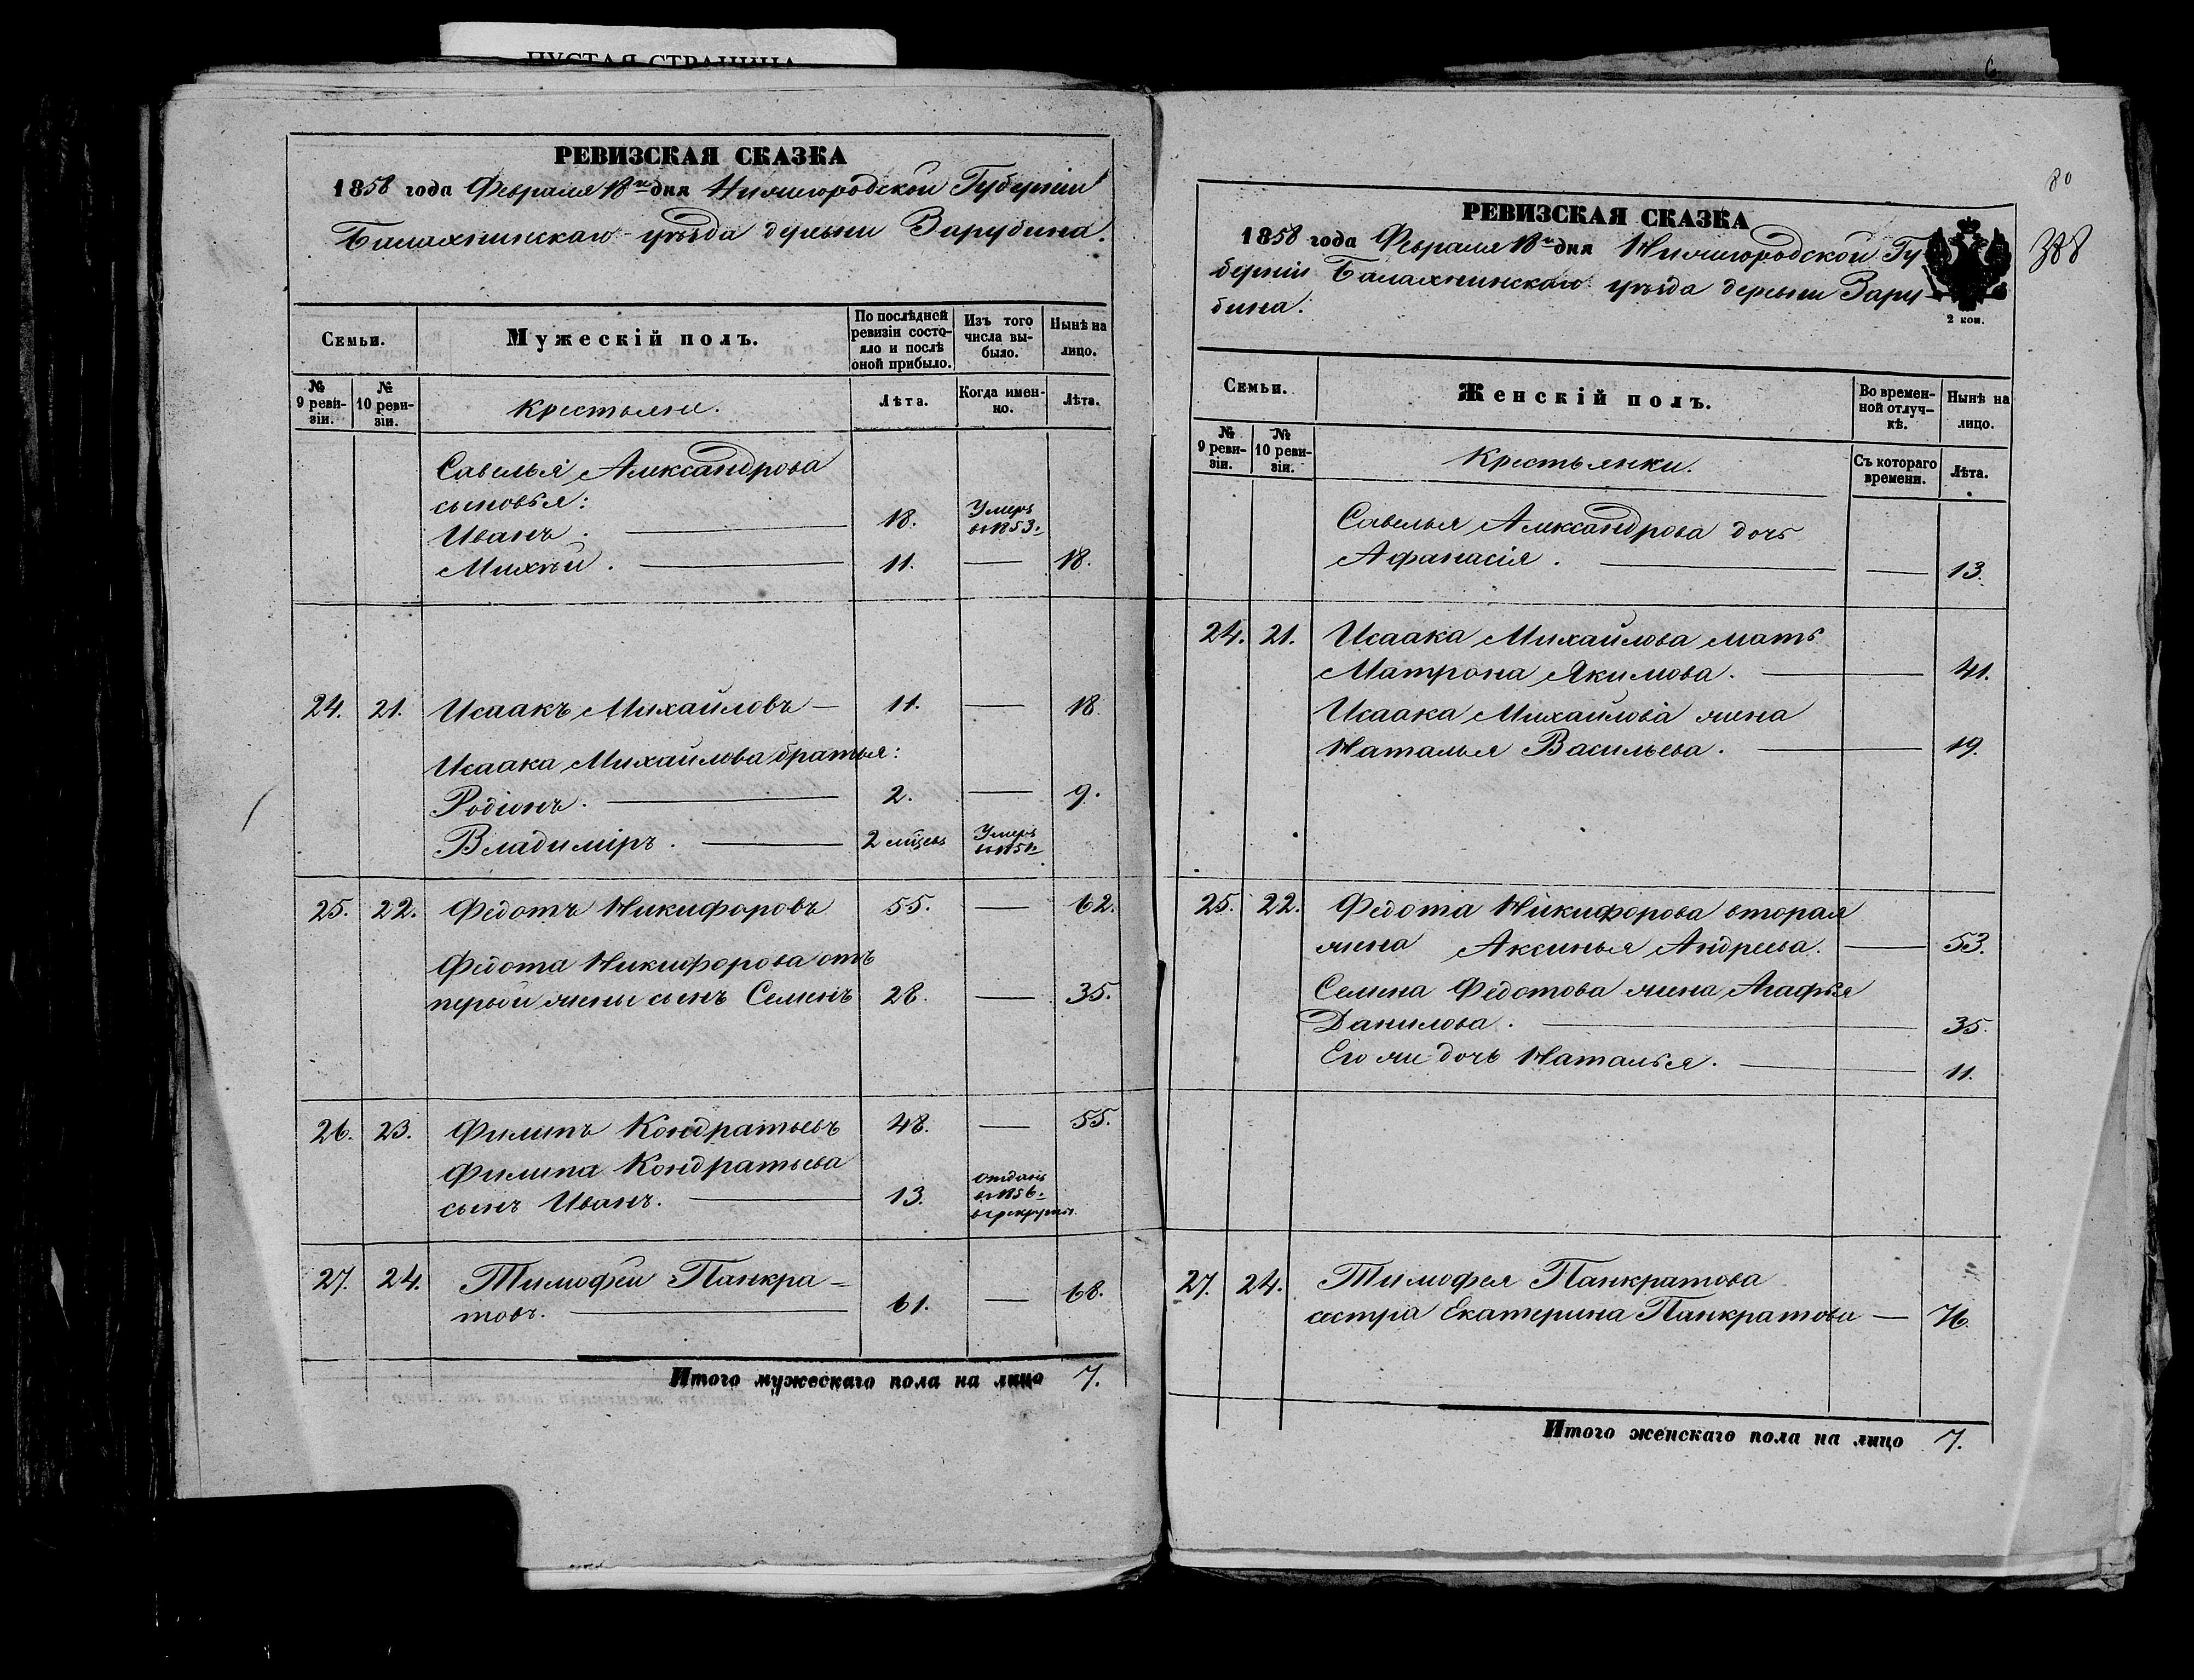 ПУСТАЯ СТРАНИЦА
РЕВИЗСКАЯ СКАЗКА
1858 года Февраля 18го дня Нижегородской Губерніи
Балахнинскаго уѣзда деревни Зарубина.
Семьи.
Мужескій полъ.
По послѣдней ревизіи состояло и послѣ оной прибыло.
Изъ того числа выбыло.
Нынѣ на лицо.
№ 9 ревизіи.
№ 10 ревизіи.
Крестьяне.
Лѣта.
Когда именно.
Лѣта.
Савелья Александрова
сыновья:
Иванъ. 18. Умеръ въ 1853.
Михѣй. 11. — 18.
24. 21. Исаакъ Михайловъ — 11. — 18.
Исаака Михайлова братья:
Родіонъ. 2. — 9.
Владиміръ. 2 мѣсев Умеръ
25. 22. Федотъ Никифоровъ 55. — 62.
Федота Никифорова отъ
первой жены сынъ Семенъ 28. — 35.
26. 23. Филипъ Кондратьевъ 48. — 55.
Филипа Кондратьева
сынъ Иванъ. 13. отданъ въ 1856. въ рекруты.
27. 24. Тимофей Панкра-
товъ. 61. — 68.
Итого мужескаго пола на лицо 7.
80
РЕВИЗСКАЯ СКАЗКА
1858 года Февраля 18го дня Нижегородской Гу
берніи Балахнинскаго уѣзда деревни Зару-
бина.
2 коп.
Семьи.
Женскій полъ.
Во временной отлучкѣ.
Нынѣ на лицо.
№ 9 ревизіи.
№ 10 ревизіи.
Крестьянки.
Съ котораго времени.
Лѣта.
Савелья Александрова дочь
Афанасія. — 13.
24. 21. Исаака Михайлова мать
Матрона Якимова. — 41.
Исаака Михайлова жена
Наталья Васильева. — 19.
25. 22. Федота Никифорова вторая
жена Аксинья Андреева. — 53.
Семена Федотова жена Агафья
Данилова. — 35.
Его же дочь Наталья. — 11.
27. 24. Тимофея Панкратова
сестра Екатерина Панкратова — 76.
Итого женскаго пола на лицо 7.